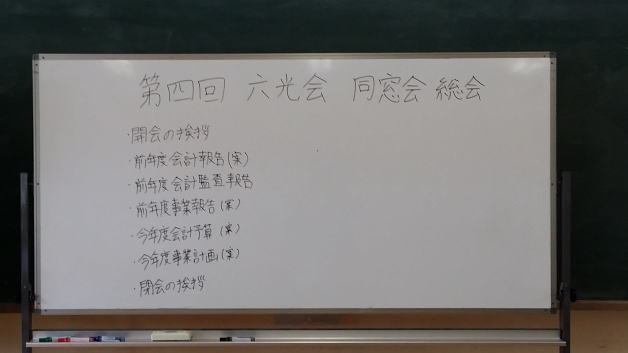 第四回 六光会 同窓会 総会
・開会の挨拶
・前年度会計報告(案)
・前年度会計監査報告
・前年度事業報告(案)
・今年度会計予算(案)
・今年度事業計画(案)
・閉会の挨拶